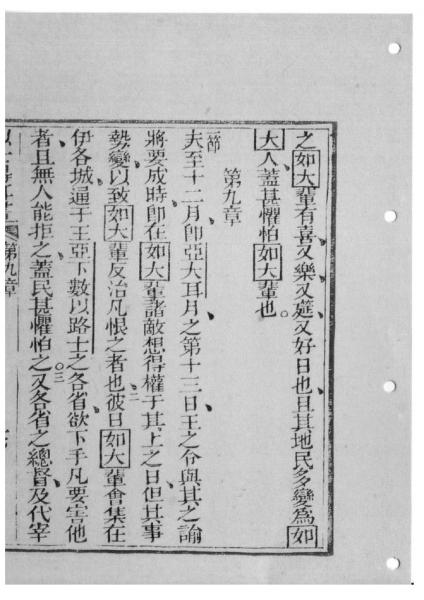 之如大輩有喜又樂又筵又好日也且其地民多變為如
大人蓋甚懼怕如大輩也
第九章
一節
夫至十二月即亞大耳月之第十三日王之令與其之諭
將要成時即在如大輩諸敵想得權于其上之日但其事
勢變以致如大輩反治凡恨之者也二彼日如大輩會集在
伊各城逼于王亞下數以路士之各省欲下手凡要害他
者且無人能拒之蓋民甚懼怕之三又各省之總督及代宰
第九章